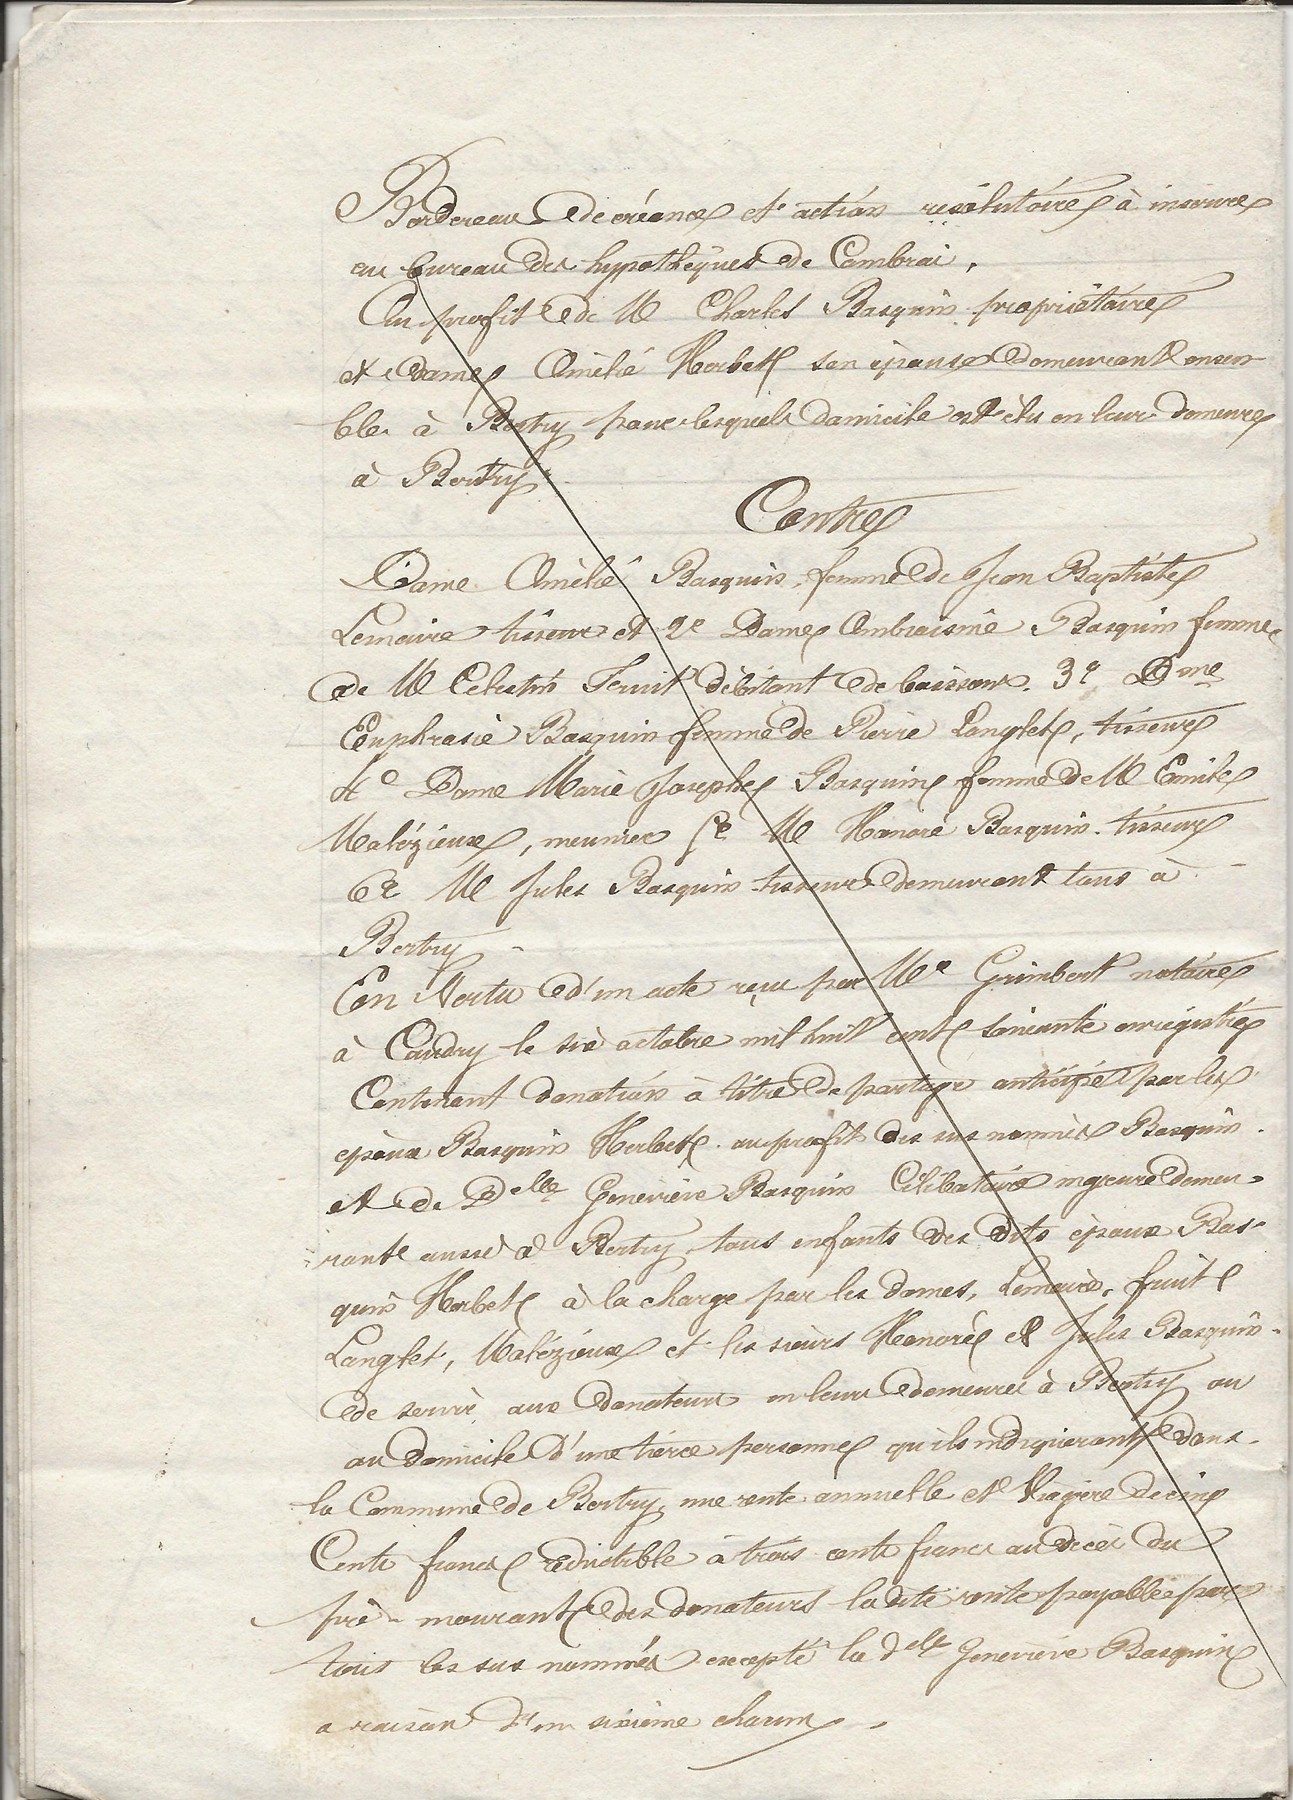 Bordereau de créance et action résolutoire à inscrire
au bureau des hypothèques de Cambrai,
Au profit de M Charles Basquin propriétaire
et dame Amélie Herbet son épouse demeurant ensem-
ble à Bertry pour lesquels domicile est élu en leur demeure
à Bertry
Contre
Dame Amélie Basquin, femme de Jean Baptiste
Lemaire tisseur et 2e Dame Ambroisine Basquin femme
de M Celestin Fruit débitant de boissons. 3e Dme
Euphrasie Basquin femme de Pierre Langlet, tisseur
4e Dame Marie Josephe Basquin femme de M Emile
Malézieux, meunier 5e M Honoré Basquin tisseur
6e M Jules Basquin tisseur demeurant tous à
Bertry
En Vertu d'un acte reçu par Me Grimbert notaire
à Caudry le six octobre mil huit cent soixante enregistré
Contenant donation à titre de partage anticipé par les
époux Basquin Herbet au profit des sus nommés Basquin
et de Delle Geneviève Basquin Célibataire majeure demeu-
rant aussi à Bertry, tous enfants des dits époux Bas-
quin Herbet à la charge par les dames, Lemaire, fruit
Langlet, Malézieux et les sieurs Honoré et Jules Basquin
de servir aux donateurs en leur demeure à Bertry ou
au domicile d'une tierce personne qu'ils indiqueront dans
la Commune de Bertry, une rente annuelle et Viagère de cinq
Cents francs réductible à trois cents francs au décès du
pré-mourant des donateurs la dite rente payable par
tous les sus nommés excepté la delle Geneviève Basquin
a raison d'un sixième chacun